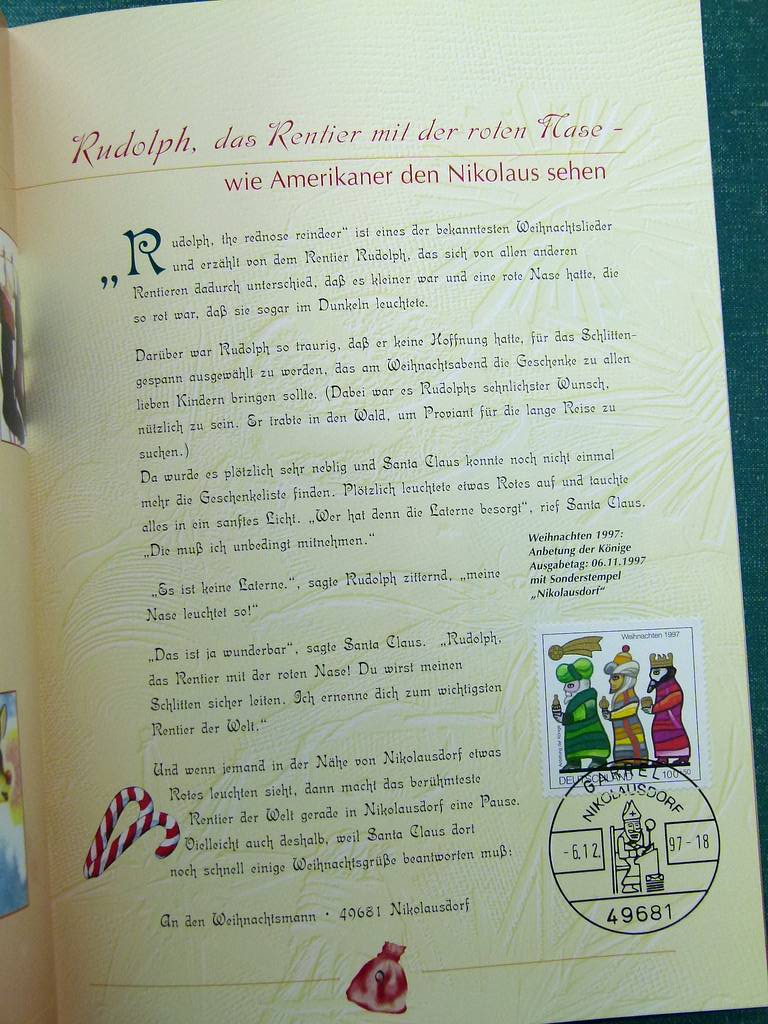 Rudolph, das Rentier mit der roten Nase -
wie Amerikaner den Nikolaus sehen
„Rudolph, the rednose reindeer“ ist eines der bekanntesten Weihnachtslieder
und erzählt von dem Rentier Rudolph, das sich von allen anderen
Rentieren dadurch unterschied, daß es kleiner war und eine rote Nase hatte, die
so rot war, daß sie sogar im Dunkeln leuchtete.
Darüber war Rudolph so traurig, daß er keine Hoffnung hatte, für das Schlitten-
gespann ausgewählt zu werden, das am Weihnachtsabend die Geschenke zu allen
lieben Kindern bringen sollte. (Dabei war es Rudolphs sehnlichster Wunsch,
nützlich zu sein. Er trabte in den Wald, um Proviant für die lange Reise zu
suchen.)
Da wurde es plötzlich sehr neblig und Santa Claus konnte noch nicht einmal
mehr die Geschenkeliste finden. Plötzlich leuchtete etwas Rotes auf und tauchte
alles in ein sanftes Licht. „Wer hat denn die Laterne besorgt“, rief Santa Claus.
„Die muß ich unbedingt mitnehmen.“
„Es ist keine Laterne.“, sagte Rudolph zitternd, „meine
Nase leuchtet so!“
„Das ist ja wunderbar“, sagte Santa Claus. „Rudolph,
das Rentier mit der roten Nase! Du wirst meinen
Schlitten sicher leiten. Ich ernenne dich zum wichtigsten
Rentier der Welt.“
Und wenn jemand in der Nähe von Nikolausdorf etwas
Rotes leuchten sieht, dann macht das berühmteste
Rentier der Welt gerade in Nikolausdorf eine Pause.
Vielleicht auch deshalb, weil Santa Claus dort
noch schnell einige Weihnachtsgrüße beantworten muß:
An den Weihnachtsmann · 49681 Nikolausdorf
Weihnachten 1997:
Anbetung der Könige
Ausgabetag: 06.11.1997
mit Sonderstempel
„Nikolausdorf“
Weihnachten 1997
Anbetung der Könige
DEUTSCHLAND 100+50
GARREL
NIKOLAUSDORF
-6.12. 97-18
49681